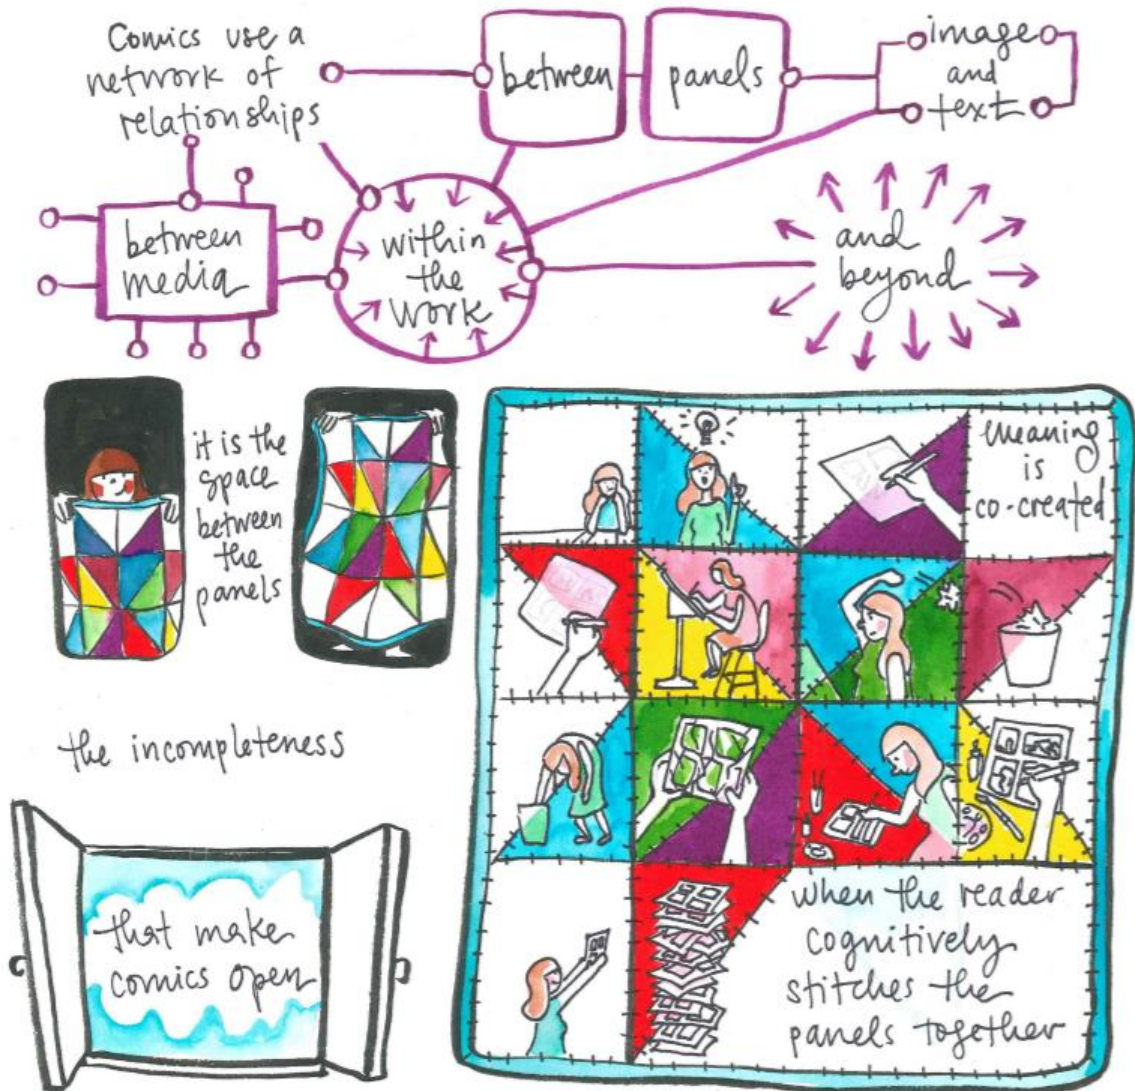 Comics use a
network of
relationships
between
panels
image
and
text
between
media
within
the
work
and
beyond
it is the
space
between
the
panels
the incompleteness
that make
comics open
meaning
is
co-created
when the reader
cognitively
stitches the
panels together